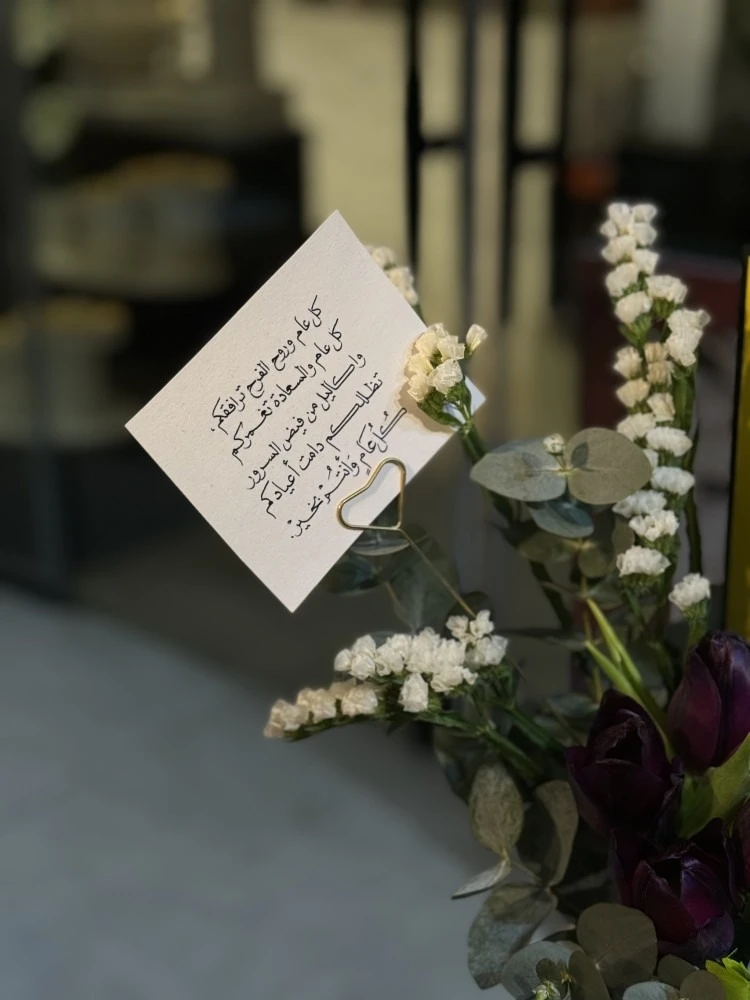 كل عام وروح الفرح ترافقكم،
كل عام والسعادة تغمركم
وأكاليل من فيض السرور
تظللكم دامت أعيادكم
كُل عَام وَأنتُـــم بخَيرْ.